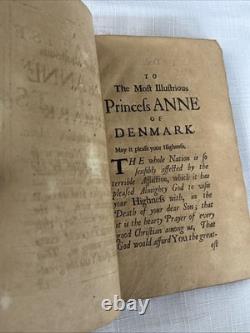 TO
The Most Illustrious
Princeſs ANNE
OF
DENMARK.
May it pleaſe your Highneſs,
THE whole Nation is ſo
ſenſibly affected by the
terrible Affliction, which it has
pleaſed Almighty God to viſit
your Highneſs with, in the
Death of your dear Son; that
it is the hearty Prayer of every
good Christian among us, That
God would afford You the great-
eſt